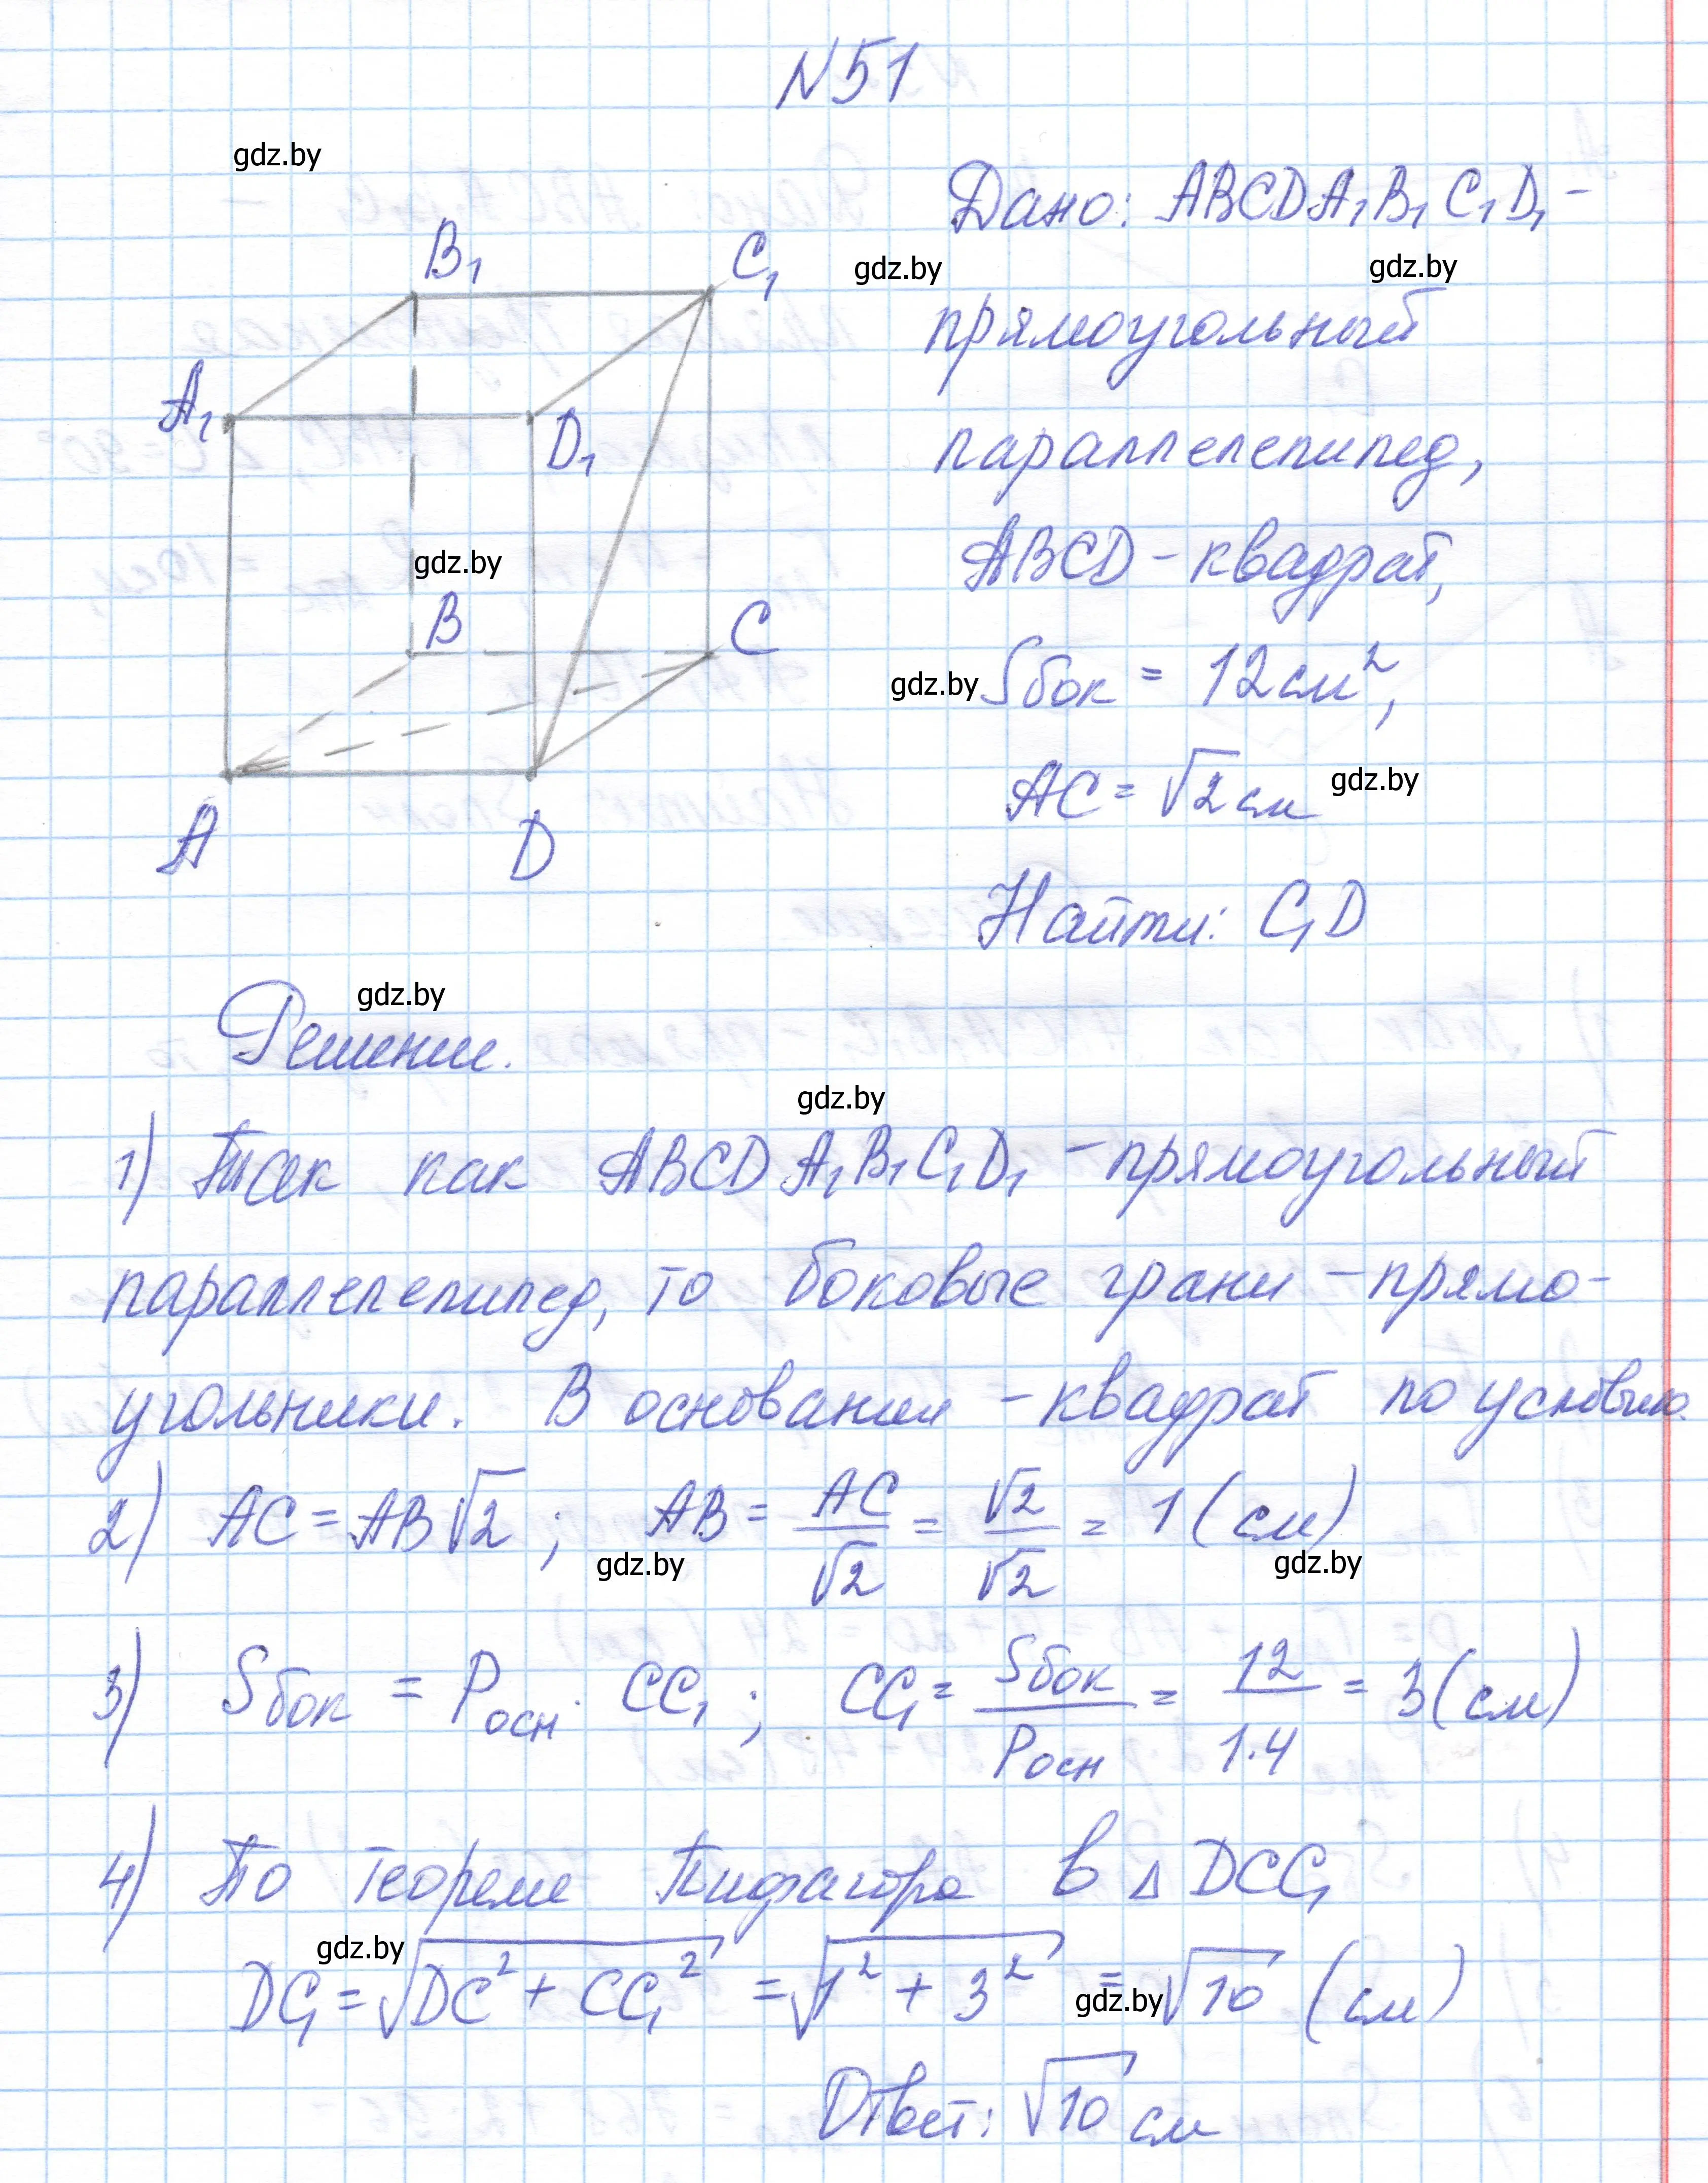 N51
gdz.by
Дано: ABCDA₁B₁C₁D₁ –
gdz.by gdz.by
прямоугольный
параллелепипед,
ABCD – квадрат,
gdz.by
gdz.by Sбок = 12 см²,
AC = √2 см gdz.by
Найти: C₁D
B₁ C₁
A₁ D₁
B C
A D
gdz.by
Решение.
gdz.by
1) Так как ABCDA₁B₁C₁D₁ – прямоугольный
параллелепипед, то боковые грани – прямо-
угольники. В основании – квадрат по условию.
2) AC = AB√2 ; AB = AC/√2 = √2/√2 = 1 (см)
gdz.by gdz.by
3) Sбок = Pосн · CC₁ ; CC₁ = Sбок/Pосн = 12/1·4 = 3 (см)
4) По теореме Пифагора в Δ DCC₁
gdz.by
DC₁ = √DC² + CC₁² = √1² + 3² = √10 (см)
gdz.by
Ответ: √10 см